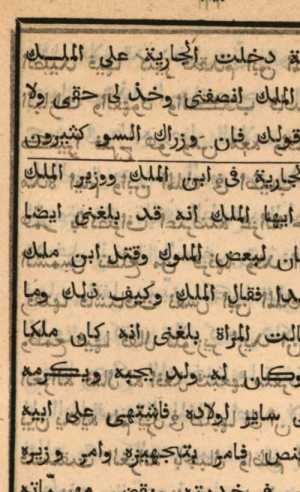 ة دخلت الجارية على الملك
الملك انصفنى وخذ لى حقى ولا
قولك فان وزراك السو كثيرون
الجارية فى ابن الملك ووزير الملك
ايها الملك انه قد بلغنى ايضا
ان لبعض الملوك وقتل ابن ملك
دا فقال الملك وكيف ذلك وما
الت المراة بلغنى انه كان ملكا
وكان له ولد يحبه ويكرمه
ساير اولاده فاشتهى على ابيه
نص فامر بتجهيزه وامر وزيره